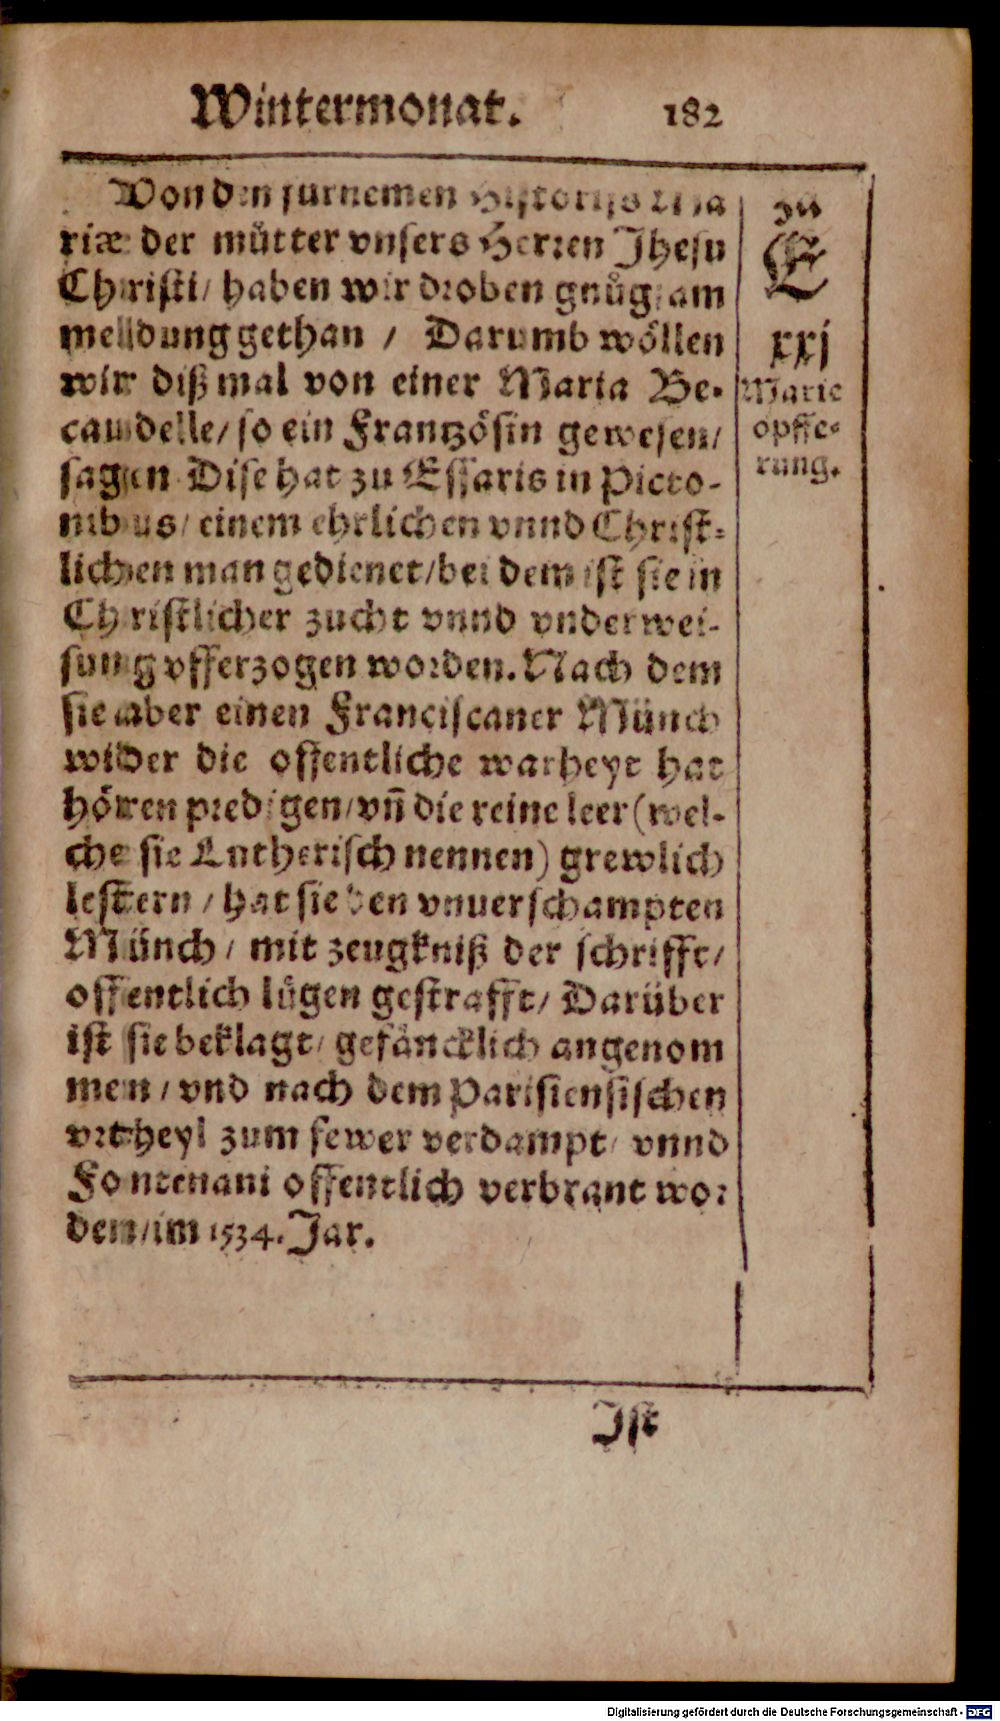 Wintermonat. 182
Von den furnemen Historijs Ma
riæ der můtter vnsers Herren Jhesu
Christi/ haben wir droben gnůgsam
meldung gethan / Darumb wöllen
wir diß mal von einer Maria Be-
caudelle/ so ein Frantzösin gewesen/
sagen Dise hat zu Essaris in Picto-
nibus/ einem ehrlichen vnnd Christ-
lichen man gedienet/ bei dem ist sie in
Christlicher zucht vnnd vnderwei-
sung vfferzogen worden. Nach dem
sie aber einen Franciscaner Münch
wider die offentliche warheyt hat
hören predigen/ vñ die reine leer (wel-
che sie Lutherisch nennen) grewlich
lestern / hat sie den vnuerschampten
Münch / mit zeugkniß der schrifft/
offentlich lůgen gestrafft/ Darüber
ist sie beklagt/ gefäncklich angenom
men / vnd nach dem Parisiensischen
vrtheyl zum fewer verdampt/ vnnd
Fontenani offentlich verbrant wor
den/ im 1534. Jar.
E
xxj
Marie
opffe-
rung.
Ist
Digitalisierung gefördert durch die Deutsche Forschungsgemeinschaft - DFG